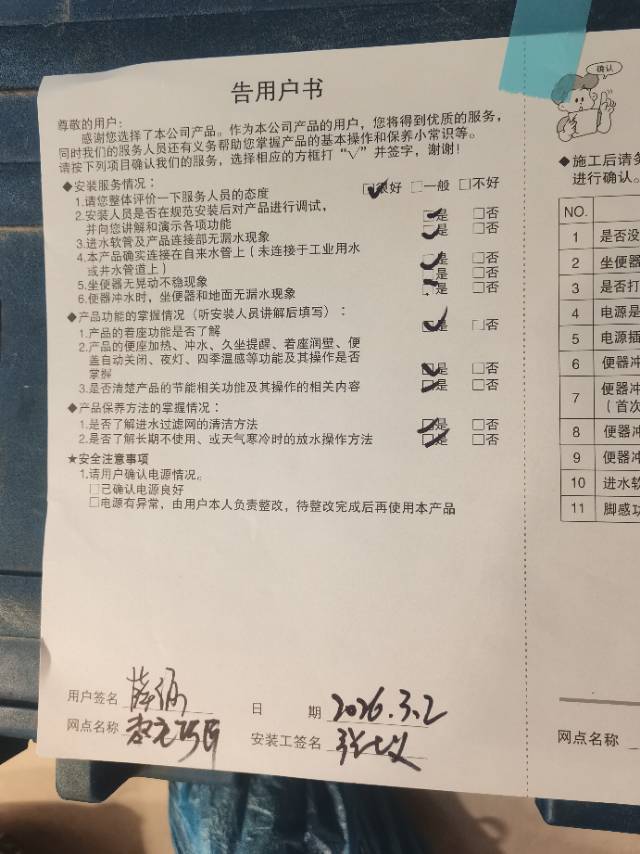 告用户书
尊敬的用户：
感谢您选择了本公司产品。作为本公司产品的用户，您将得到优质的服务，
同时我们的服务人员还有义务帮助您掌握产品的基本操作和保养小常识等。
请按下列项目确认我们的服务，选择相应的方框打“√”并签字，谢谢！
◆安装服务情况：
1.请您整体评价一下服务人员的态度 ☑很好 □一般 □不好
2.安装人员是否在规范安装后对产品进行调试，
并向您讲解和演示各项功能 ☑是 □否
3.进水软管及产品连接部无漏水现象 ☑是 □否
4.本产品确实连接在自来水管上（未连接于工业用水
或井水管道上） ☑是 □否
5.坐便器无晃动不稳现象 ☑是 □否
6.便器冲水时，坐便器和地面无漏水现象 ☑是 □否
◆产品功能的掌握情况（听安装人员讲解后填写）：
1.产品的着座功能是否了解 ☑是 □否
2.产品的便座加热、冲水、久坐提醒、着座润壁、便
盖自动关闭、夜灯、四季温感等功能及其操作是否
掌握 ☑是 □否
3.是否清楚产品的节能相关功能及其操作的相关内容 ☑是 □否
◆产品保养方法的掌握情况：
1.是否了解进水过滤网的清洁方法 ☑是 □否
2.是否了解长期不使用、或天气寒冷时的放水操作方法 ☑是 □否
★安全注意事项
1.请用户确认电源情况。
□已确认电源良好
□电源有异常，由用户本人负责整改，待整改完成后再使用本产品
用户签名 日 期 2026.3.2
网点名称 安装工签名
确认
◆施工后请务
进行确认。
NO.
1 是否没
2 坐便器
3 是否打
4 电源是
5 电源插
6 便器冲
7 便器冲
（首次
8 便器冲
9 便器冲
10 进水软
11 脚感功
网点名称